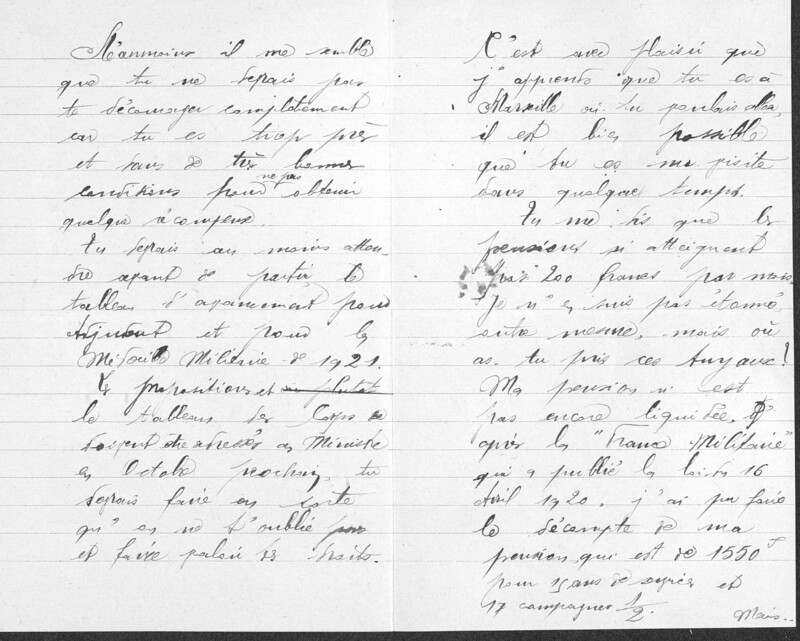 Néanmoins il me semble
que tu ne devrais pas
te décourager complètement
car tu es trop près
et dans de très bonnes
conditions pour ne pas obtenir
quelque récompense.
Tu devrais au moins atten-
dre avant de partir le
tableau d'avancement pour
Adjudant et pour la
Médaille Militaire de 1921.
Les propositions et ou plutôt
les tableaux des Corps
doivent être adressés au Ministre
en Octobre prochain, tu
devrais faire en sorte
qu'on ne t'oublie pas
et faire valoir tes droits.
C'est avec plaisir que
j'apprends que tu es à
Marseille où tu voulais aller,
il est bien possible
que tu es ma visite
dans quelque temps.
Tu me dis que les
pensions si atteignent
200 francs par mois
Je n'en suis pas étonné
outre mesure, mais où
as-tu pris ces tuyaux?
Ma pension n'est
pas encore liquidée. D'
après la "France Militaire"
qui a publié la loi du 16
Avril 1920, j'ai pu faire
le décompte de ma
pension qui est de 1550 f
pour 15 ans de service et
17 campagnes 1/2.
Mais..